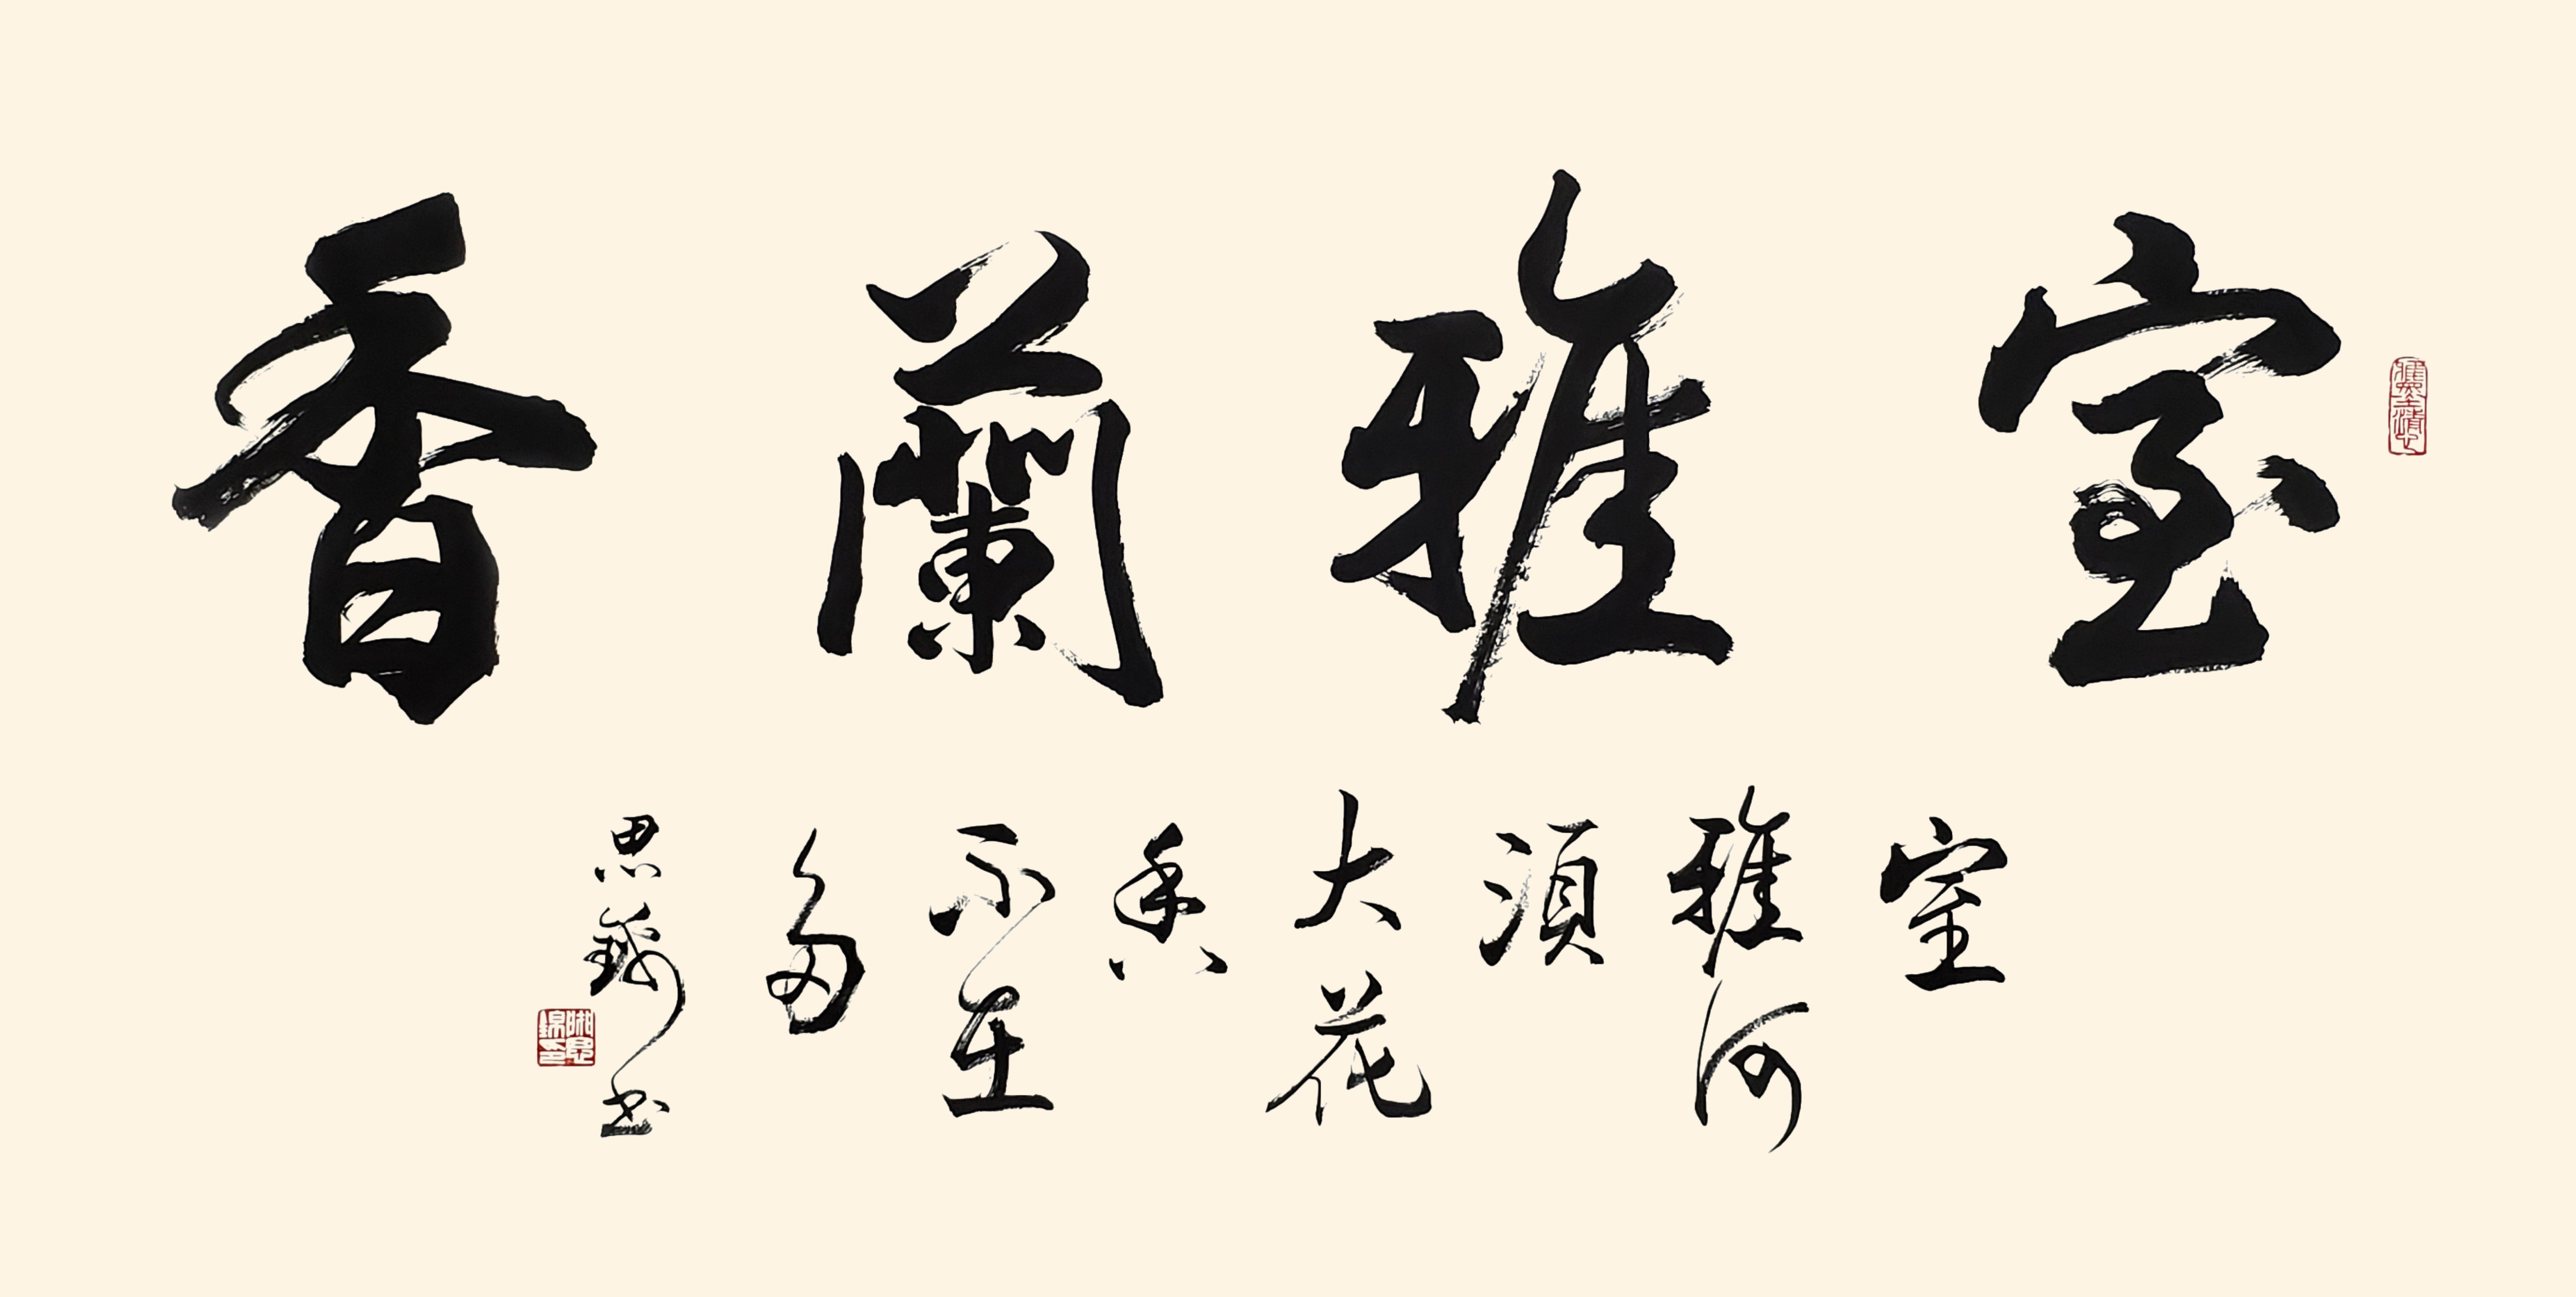 室雅蘭香
室雅何須大花香不在多
思錦书